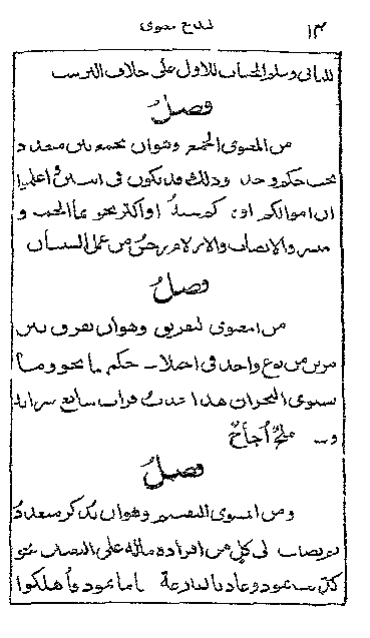 ١٣ معنوى
وسلوم الحساب للاول على خلاف الترتيب
فصل
من المعنوى الجمع وهو ان يجمع بين متعدد
تحت حكم واحد وذلك قد يكون فى اسمين
ان اموالكم او اكثر نحو انما الخمر و
ميسر والانصاب والازلام رجس من عمل الشيطان
فصل
من المعنوى لتفريق وهو ان يفرق بين
مرين من نوع واحد فى اختلاف حكمهما نحو وما
يستوى البحران هذا عذب فرات سائغ شرابه
و ملحٌ أجاجٌ
فصل
ومن المعنوى التقسيم وهو ان يذكر متعدد
ثم يضاف لى كل من افراده ماله على التعيين نحو
كذبت ثمود وعاد بالقارعة فاما ثمود فأهلكوا